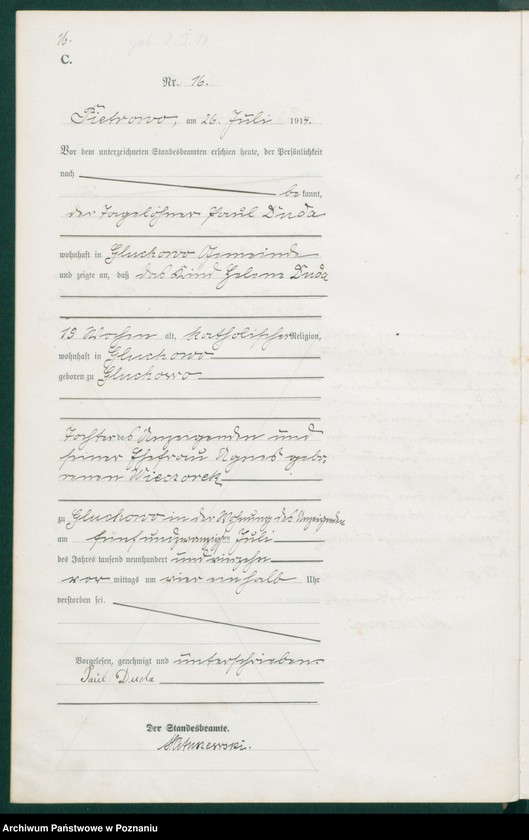 16.
C.
Nr. 16.
Pietrowo, am 26. Juli 1914.
Vor dem unterzeichneten Standesbeamten erschien heute, der Persönlichkeit
nach
be kannt,
der Tagelöhner Paul Duda
wohnhaft in Gluchowo Gemeinde
und zeigte an, daß das Kind Helene Duda
13 Wochen alt, katholischer Religion,
wohnhaft in Gluchowo
geboren zu Gluchowo
Tochter des Anzeigenden und
seiner Ehefrau Agnes gebo
renen Wieczorek
zu Gluchowo in der Wohnung des Anzeigenden
am fünfundzwanzigsten Juli
des Jahres tausend neunhundert und vierzehn
vor mittags um vier einhalb Uhr
verstorben sei.
Vorgelesen, genehmigt und unterschrieben
Paul Duda
Der Standesbeamte.
Archiwum Państwowe w Poznaniu